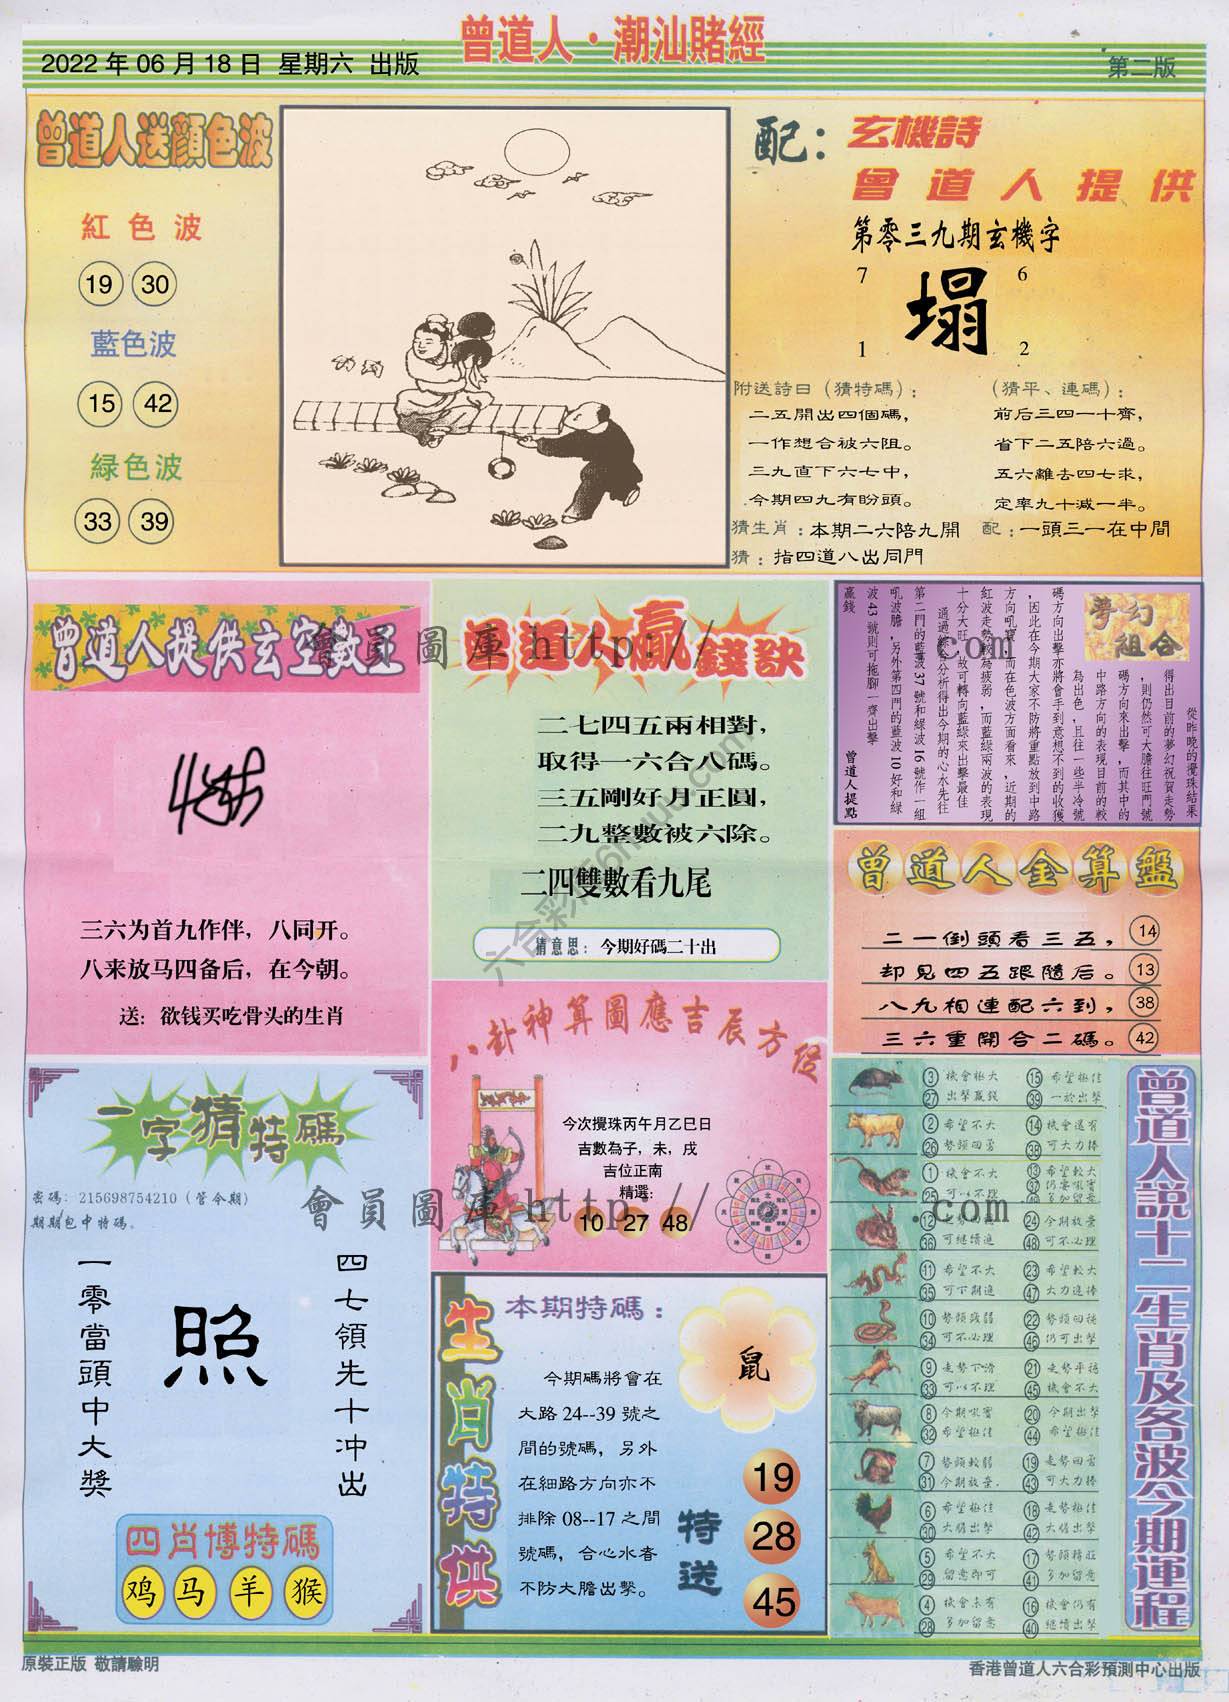 曾道人·潮汕賭經
2022 年 06 月 18 日 星期六 出版
第二版
曾道人送顏色波
紅色波
19 30
藍色波
15 42
綠色波
33 39
配：玄機詩
曾道人提供
第零三九期玄機字
7 6
塌
1 2
附送詩曰（猜特碼）：
二五開出四個碼，
一作想合被六阻。
三九直下六七中，
今期四九有盼頭。
（猜平、連碼）：
前后三四一十齊，
省下二五陪六過。
五六離去四七求，
定率九十減一半。
猜生肖：本期二六陪九開
配：一頭三一在中間
猜：指四道八出同門
曾道人提供玄空數王
三六为首九作伴，八同开。
八来放马四备后，在今朝。
送：欲钱买吃骨头的生肖
曾道人贏錢訣
二七四五兩相對，
取得一六合八碼。
三五剛好月正圓，
二九整數被六除。
二四雙數看九尾
猜意思：今期好碼二十出
夢幻組合
從昨晚的攪珠結果
得出目前的夢幻祝賀走勢
，則仍然可大膽往旺門號
碼方向來出擊，而其中的
中路方向的表現目前的較
為出色，且往一些半冷號
碼方向出擊亦將會手到意想不到的收獲
，因此在今期大家不防將重點放到中路
方向吼寶，而在色波方面看來，近期的
紅波走勢較為疲弱，而藍綠兩波的表現
十分大旺，故可轉向藍綠來出擊最佳
通過綜合分析得出今期的心水先往
第二門的藍波37號和綠波16號作一組
吼波膽，另外第四門的藍波10好和綠
波43號則可拖腳一齊出擊
贏錢
曾道人提點
曾道人金算盤
二一倒頭看三五， 14
却見四五跟隨后。 13
八九相連配六到， 38
三六重開合二碼。 42
八卦神算圖應吉辰方位
今次攪珠丙午月乙巳日
吉數為子，未，戌
吉位正南
精選:
10 27 48
一字猜特碼
密碼: 215698754210（管今期）
期期包中特碼。
四七領先十冲出
照
一零當頭中大獎
四肖博特碼
鸡 马 羊 猴
生肖特供
本期特碼：
鼠
今期碼將會在
大路 24--39 號之
間的號碼，另外
在細路方向亦不
排除 08--17 之間
號碼，合心水者
不防大膽出擊。
特送
19
28
45
曾道人說十二生肖及各波今期運程
3 機會極大 15 希望極佳
27 出擊贏錢 39 一於出擊
2 希望不大 14 機會還有
26 勢頭回勇 38 可大力捧
1 機會不大 13 希望較大
25 可以不理 37 仍要吼寶
多加留意
12 24 今期放棄
36 可繼續追 48 可不必理
11 希望不大 23 希望較大
35 可下期追 47 大力追捧
10 勢頭疲弱 22 勢頭回穩
34 可不必理 46 仍可出擊
9 走勢下滑 21 走勢平穩
33 可以不理 45 機會不大
8 今期吼寶 20 今期出擊
32 希望極佳 44 希望極佳
7 勢頭較弱 19 走勢回勇
31 今期放棄. 43 可大力捧
6 希望極佳 18 走勢極佳
30 大膽出擊 42 大膽出擊
5 希望不大 17 勢頭轉旺
29 留意即可 41 多加留意
4 機會未有 16 機會仍有
28 多加留意 40 繼續出擊
會員圖庫 http:// .com
會員圖庫 http:// .com
原裝正版 敬請驗明
香港曾道人六合彩預測中心出版